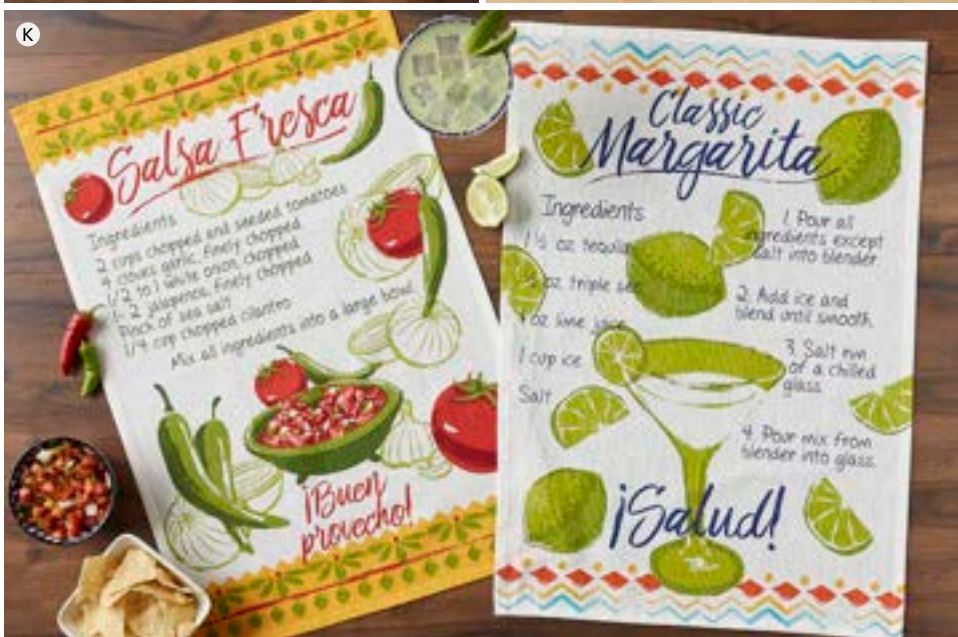 K
Salsa Fresca
Ingredients
2 cups chopped and seeded tomatoes
4 cloves garlic, finely chopped
1/2 to 1 white onion, chopped
1-2 jalapenos, finely chopped
Pinch of sea salt
1/4 cup chopped cilantro
Mix all ingredients into a large bowl.
¡Buen
provecho!
Classic
Margarita
Ingredients
1 ½ oz tequila
oz triple sec
1 oz lime juice
1 cup ice
Salt
1. Pour all
ingredients except
salt into blender.
2. Add ice and
blend until smooth.
3. Salt rim
of a chilled
glass.
4. Pour mix from
blender into glass.
¡Salud!